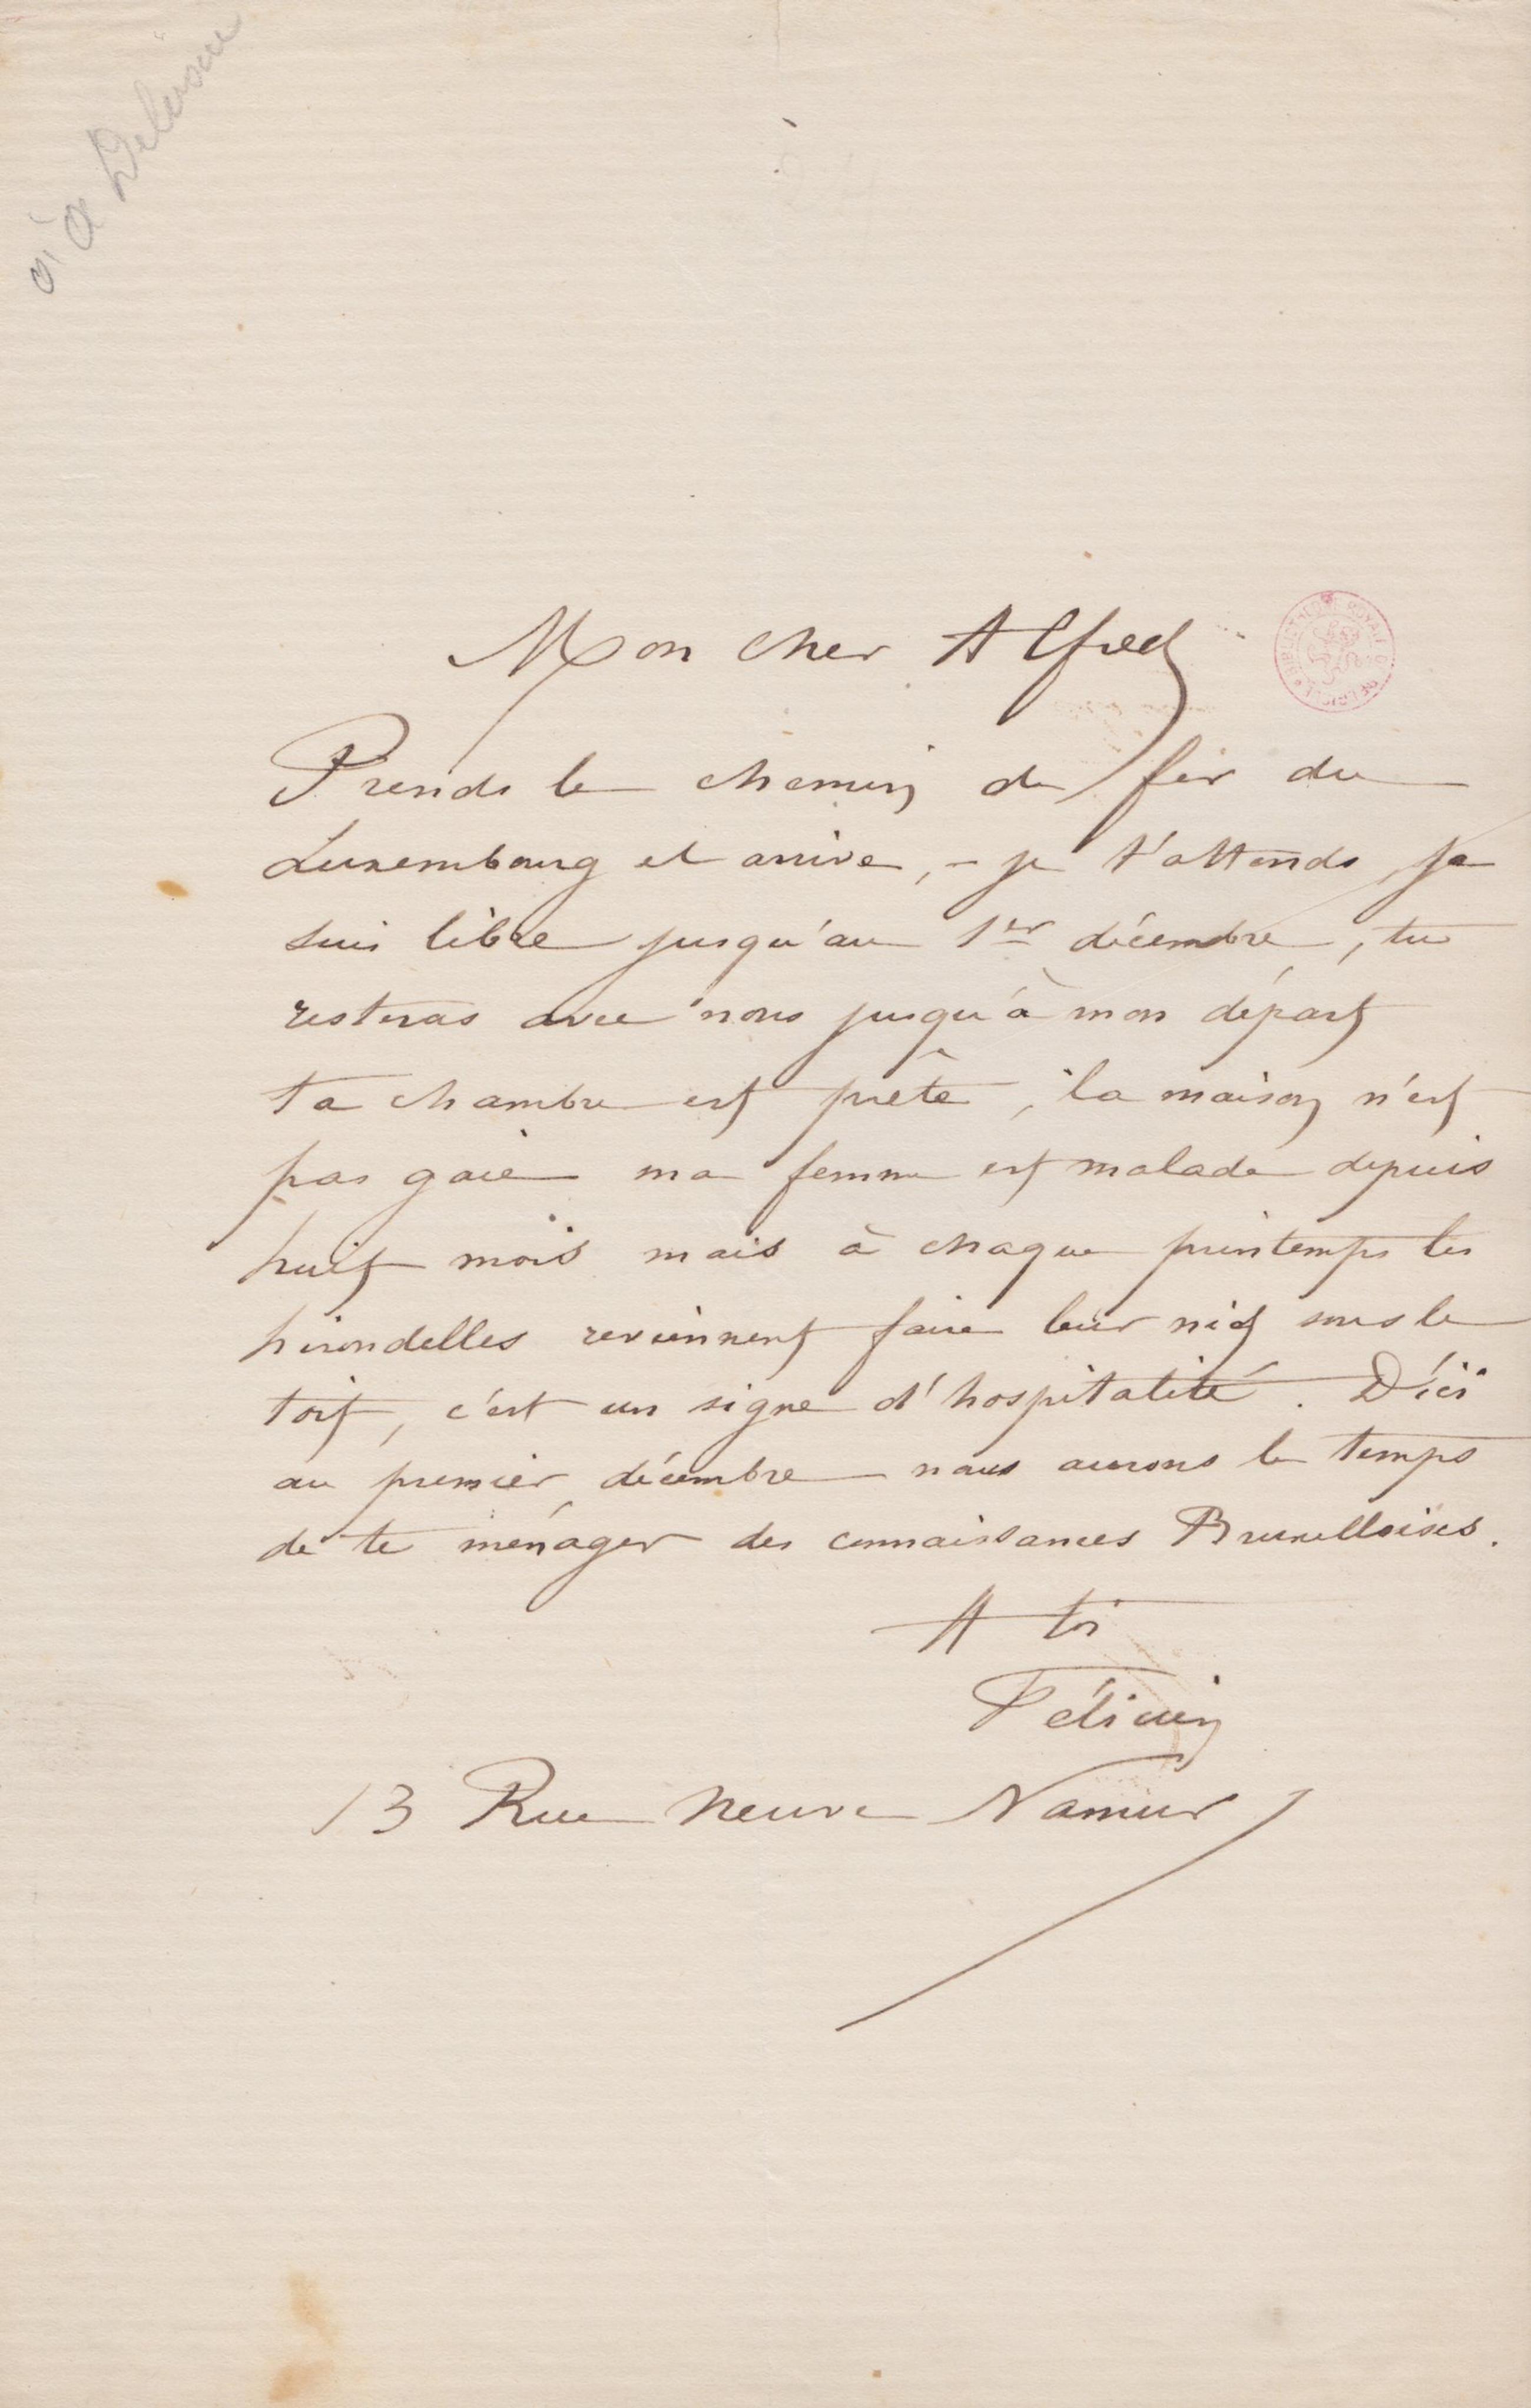 à A Delvau
Mon cher Alfred
BIBLIOTHÈQUE ROYALE DE BELGIQUE
Prends le chemin de fer du
Luxembourg et arrive, – je t'attends, je
suis libre jusqu'au 1er décembre, tu
resteras avec nous jusqu'à mon départ
ta chambre est prête, la maison n'est
pas gaie ma femme est malade depuis
huit mois mais à chaque printemps les
hirondelles reviennent faire leur nid sous le
toit, c'est un signe d'hospitalité. D'ici
au premier décembre nous aurons le temps
de te ménager des connaissances Bruxelloises.
A toi
Félicien
13 Rue Neuve Namur